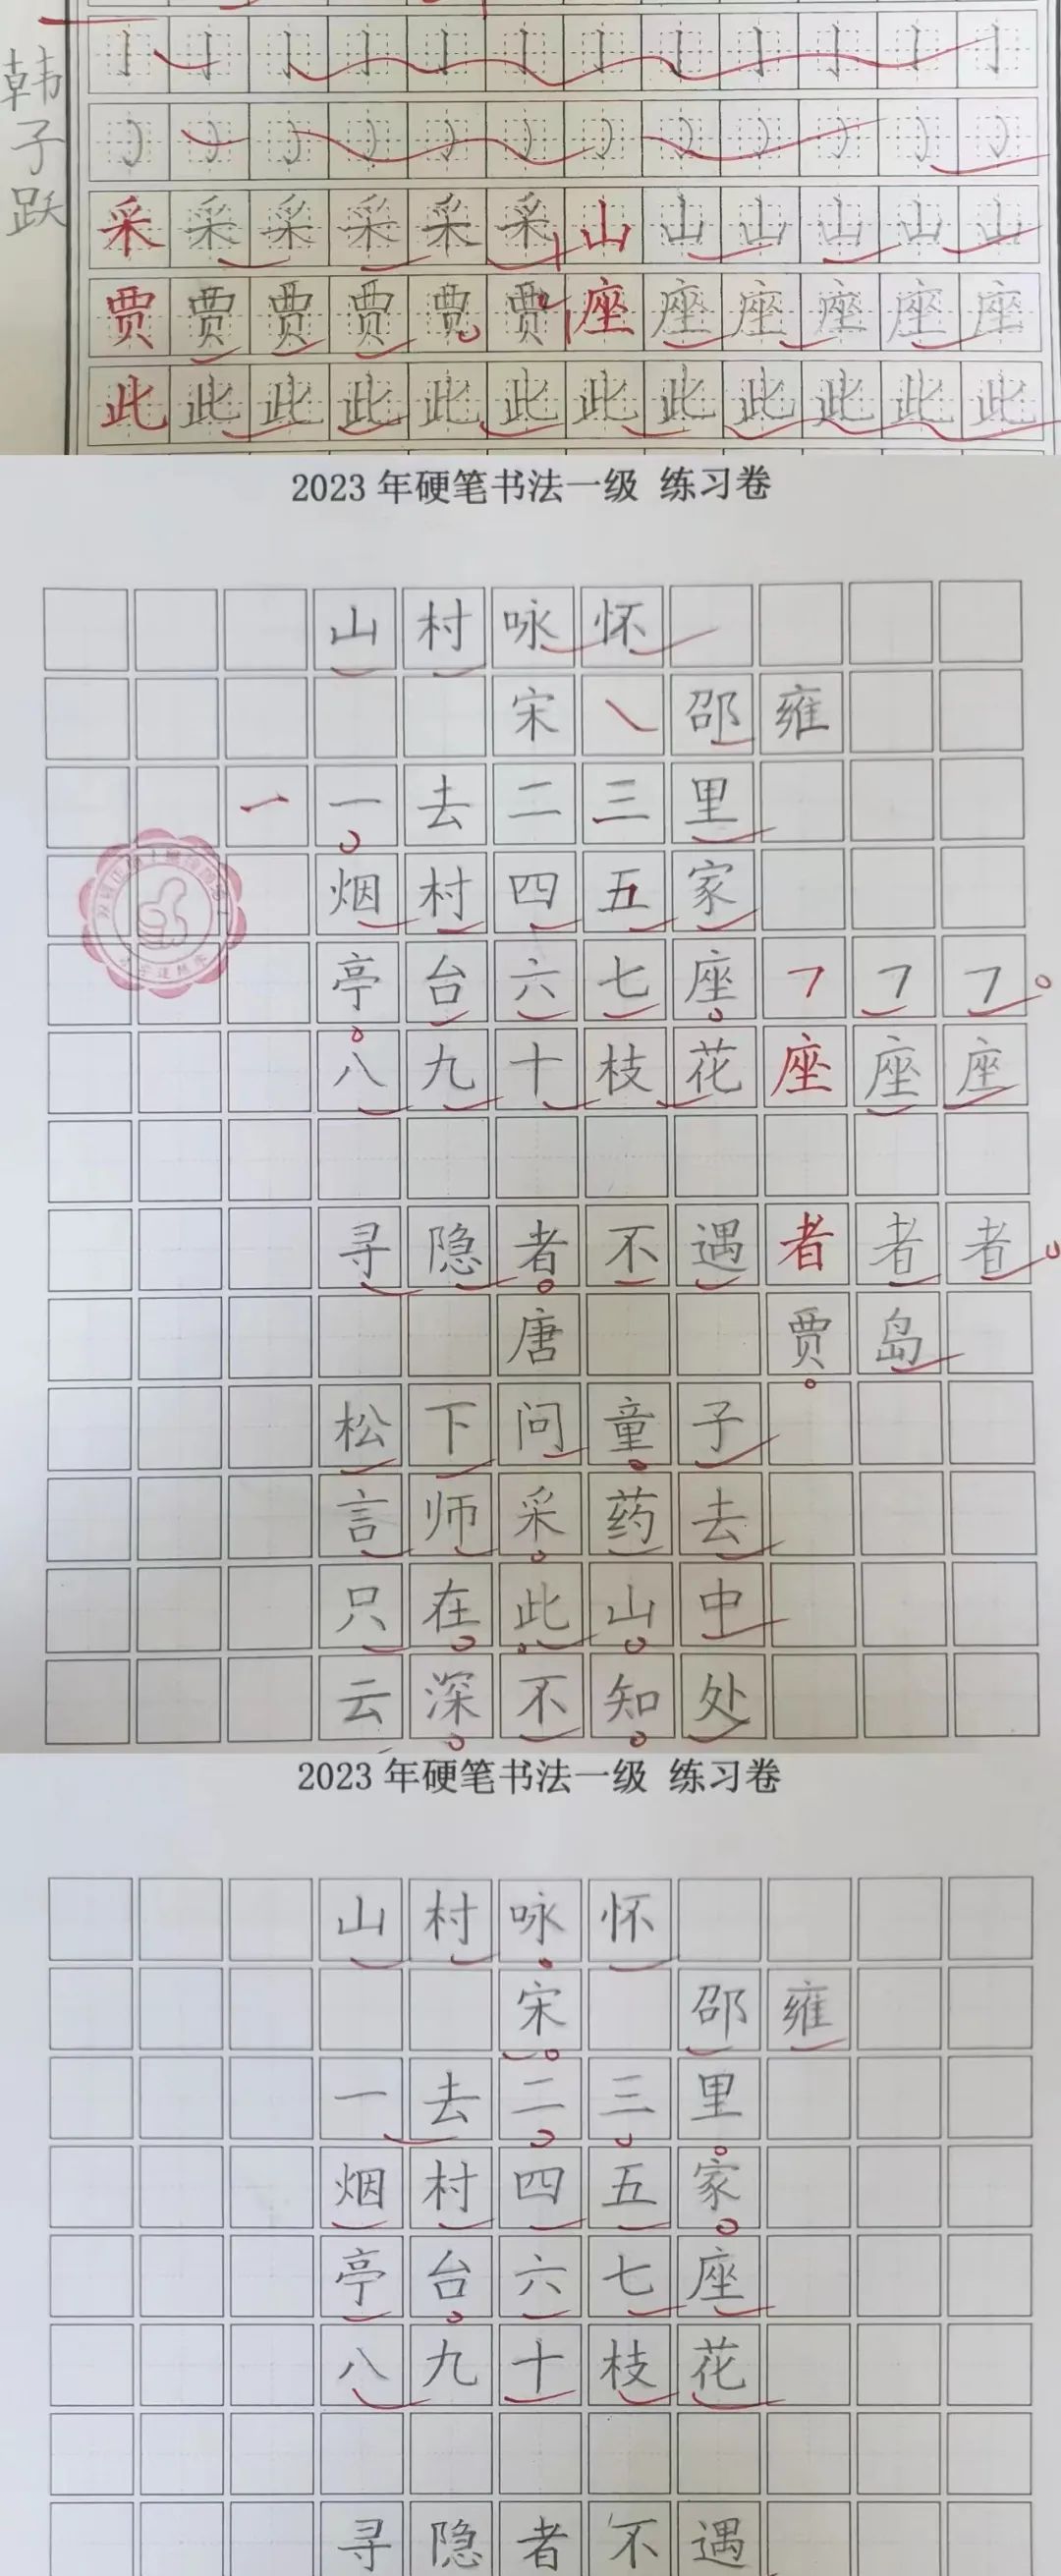 韩子跃
采采采采采采山山山山山山
贾贾贾贾贾贾座座座座座座
此此此此此此此此此此此此
2023 年硬笔书法一级 练习卷
山村咏怀
宋 邵雍
一一去二三里
烟村四五家
亭台六七座
八九十枝花座座座
寻隐者不遇者者者
唐 贾岛
松下问童子
言师采药去
只在此山中
云深不知处
2023 年硬笔书法一级 练习卷
山村咏怀
宋 邵雍
一去二三里
烟村四五家
亭台六七座
八九十枝花
寻隐者不遇